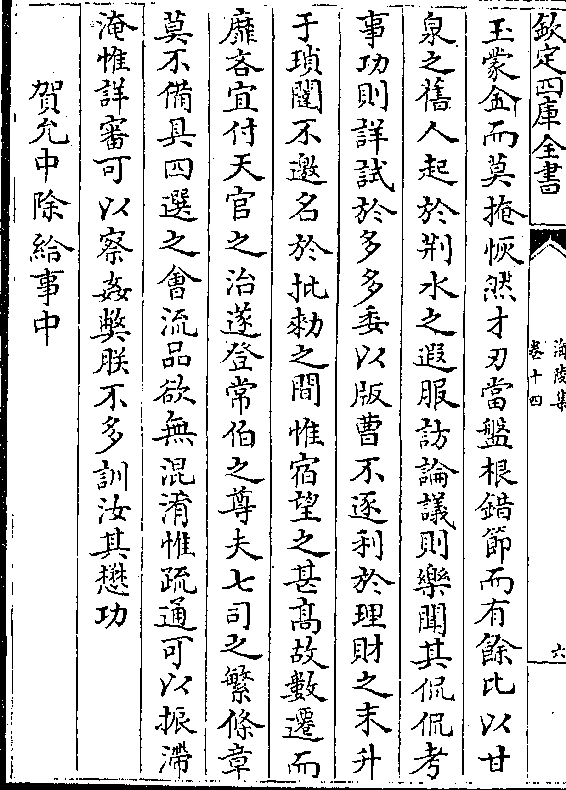 欽定四庫全書
海陵集
卷十四
六
玉蒙金而莫掩恢然才刃當盤根錯節而有餘比以甘
泉之舊人起於荆水之遐服訪論議則樂聞其侃侃考
事功則詳試於多多委以版曹不逐利於理財之末升
于瑣闥不邀名於批勑之間惟宿望之甚髙故數遷而
靡吝宜付天官之治遂登常伯之尊夫七司之繁條章
莫不備具四選之會流品欲無混淆惟疏通可以振滯
淹惟詳審可以察姦弊朕不多訓汝其懋功
賀允中除給事中